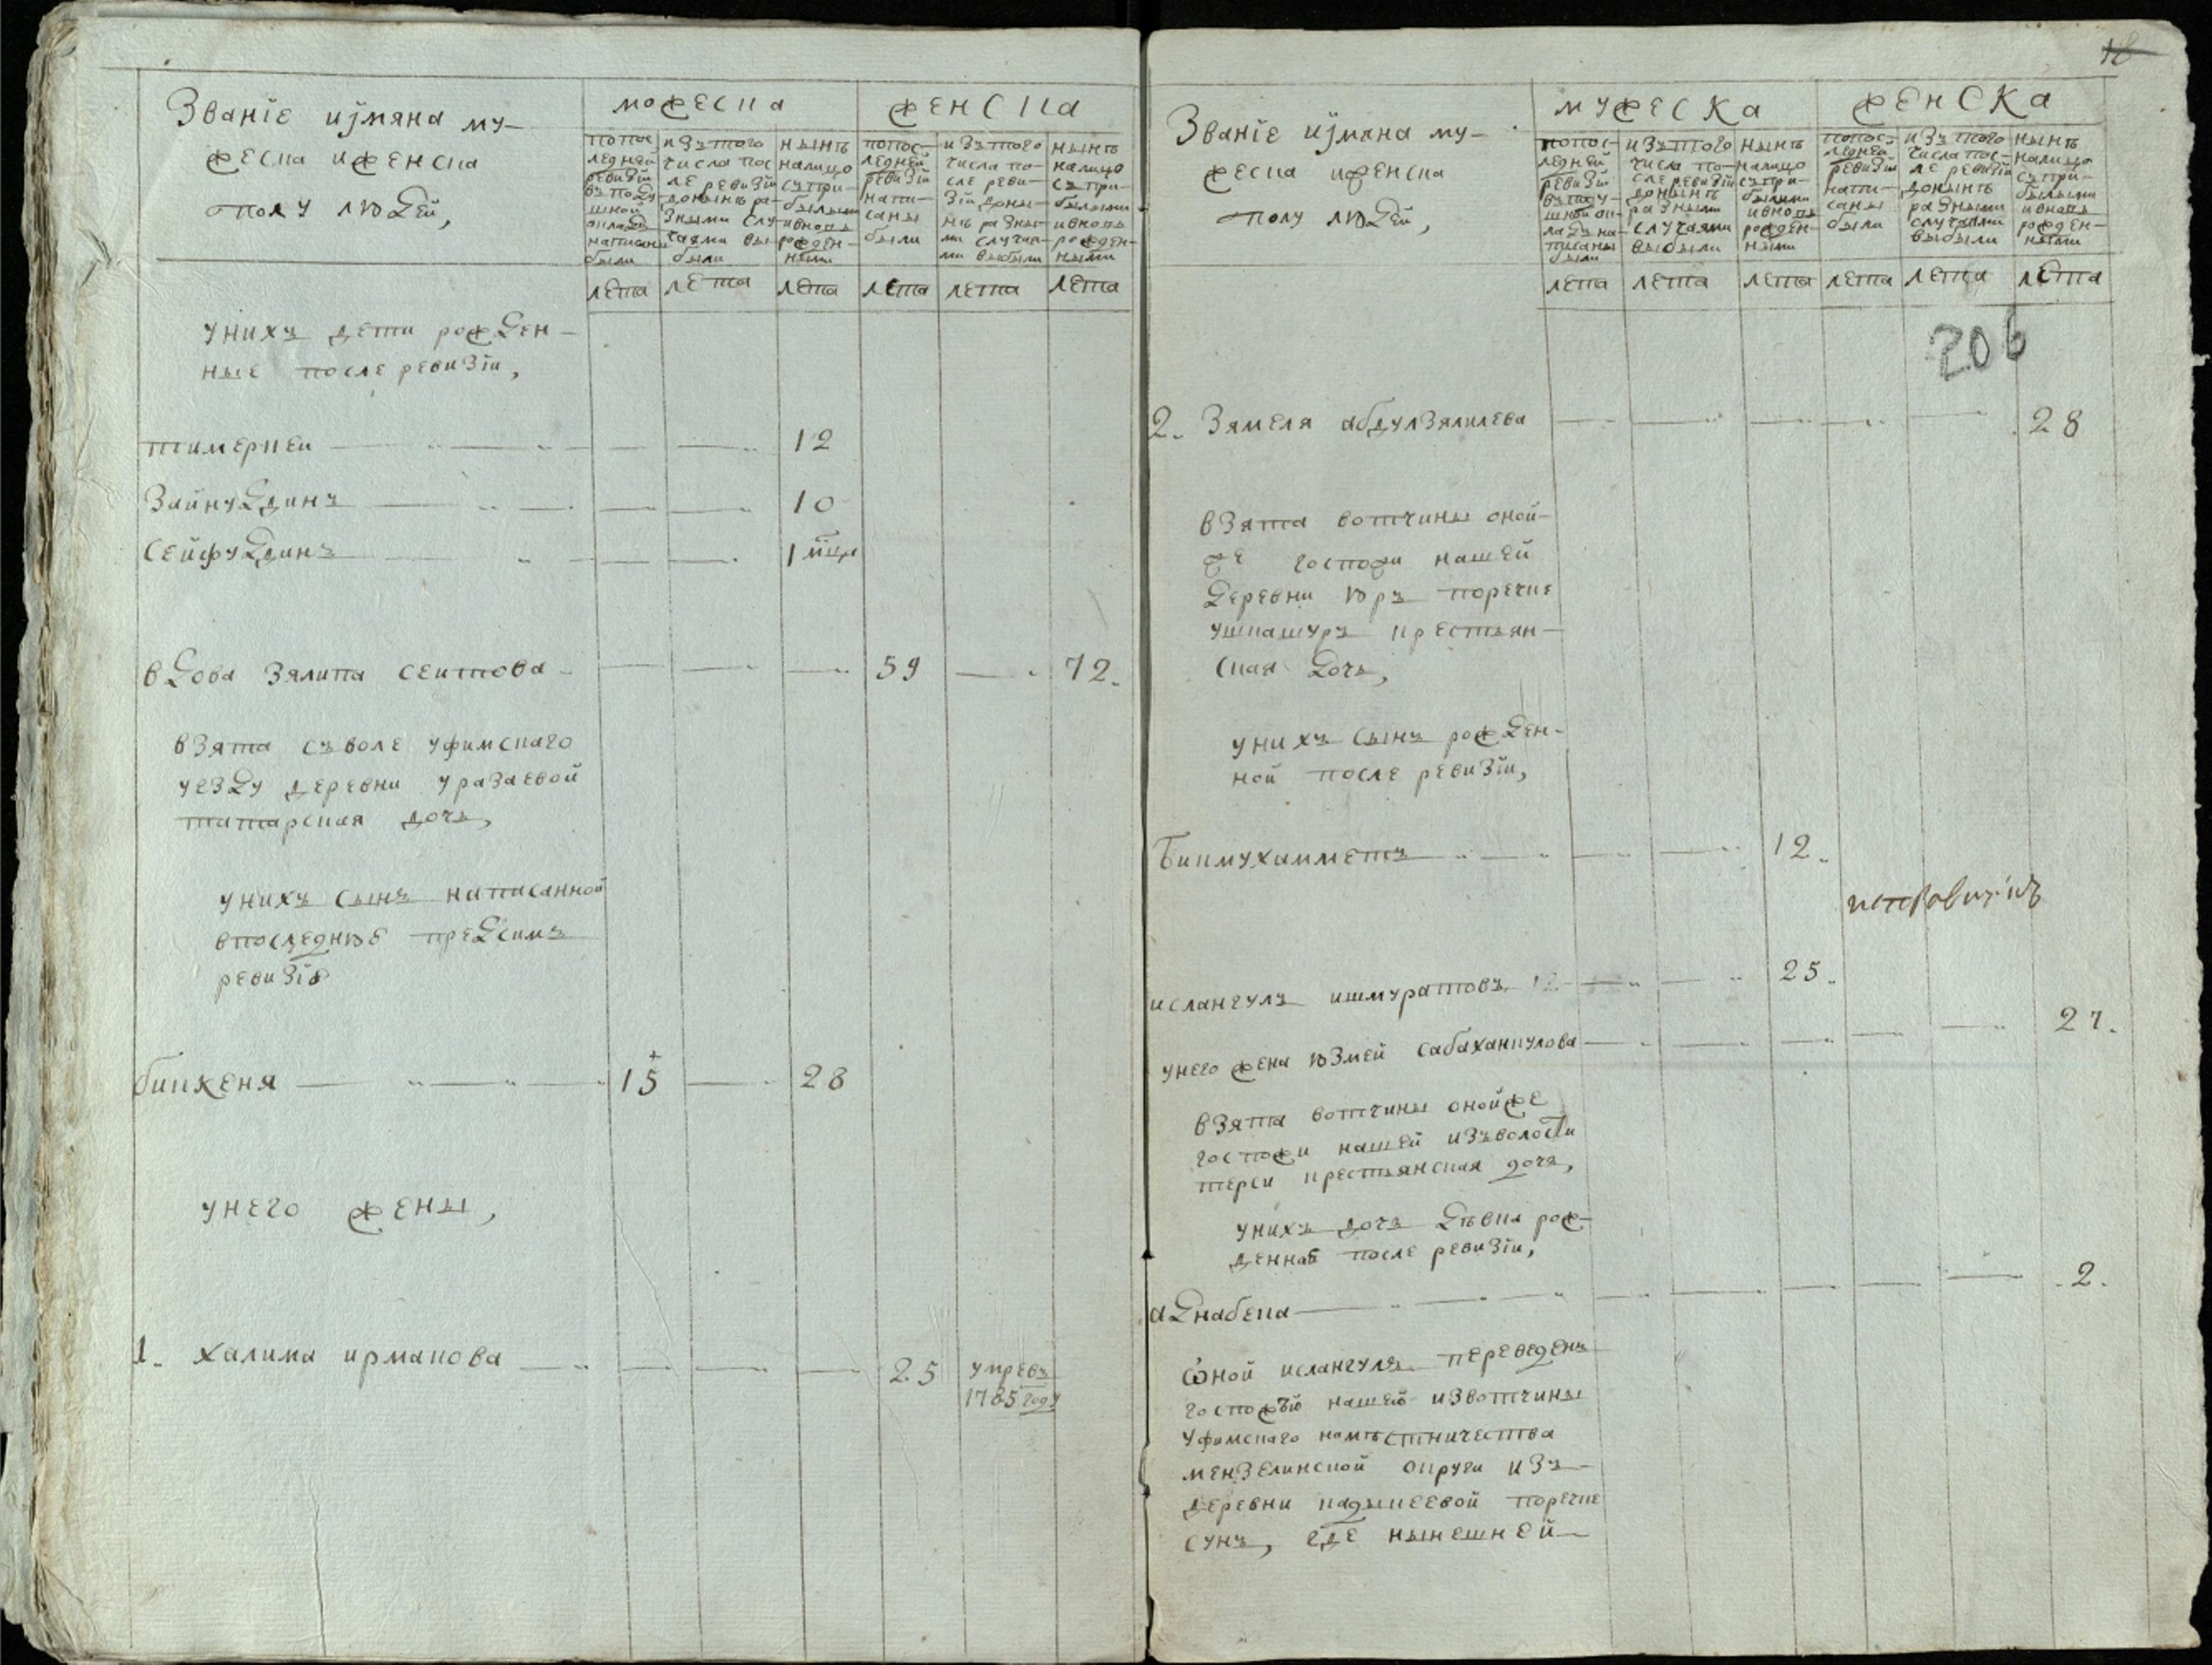 Званїе иjмяна му-
жеска иженска
полу людей,
можеска
женска
попос
ледней
ревизїи
въподу
шной
окладъ
написаны
были
изътого
числа пос
ле ревизїи
донынѣ ра-
зными слу
чаями вы-
были
нынѣ
налицо
съпри-
былыми
ивновь
рожден-
ными
попос-
ледней
ревизїи
напи-
саны
были
изътого
числа по-
сле реви-
зїи доны-
нѣ разны-
ми случая-
ми выбыли
нынѣ
налицо
съпри-
былыми
ивновь
рожден-
ными
лета лета лета лета лета лета
унихъ дети рожден-
ные после ревизїи,
тимеркеи 12
Зайнуддинъ 10
Сейфуддинъ 1 мцъ
вдова Зялипа сеитова 59 72.
взята съволе уфимскаго
уезду деревни уразаевой
татарская дочь,
унихъ сынъ написанной
впоследнюю предсимъ
ревизїю
биккеня 15 28
унего жены,
1. халима ирмакова 25 умрѣвъ
1785 году
18
Званїе иjмяна му-
жеска иженска
полу людей,
мужеска
женска
попос-
ледней
ревизїи
въподу-
шной ок-
ладъ на-
писаны
были
изътого
числа по-
сле ревизїи
донынѣ
разными
случаями
выбыли
нынѣ
налицо
съпри-
былыми
ивновь
рожден-
ными
попос-
ледней
ревизїи
напи-
саны
были
изътого
числа пос-
ле ревизїи
донынѣ
разными
случаями
выбыли
нынѣ
налицо
съпри-
былыми
ивновь
рожден-
ными
лета лета лета лета лета лета
206
2. Зямеля абдулзялилева 28
взята вотчины оной-
же госпожи нашей
деревни юръ поречке
ушкашуръ крестьян-
ская дочь,
унихъ сынъ рожден-
ной после ревизїи,
Бикмухамметъ 12.
ислангулъ ишмуратовъ 25.
унего жена юзмей сабаханкулова 27.
взята вотчины онойже
госпожи нашей изъволости
терси крестьянская дочь,
унихъ дочь дѣвка рож-
денная после ревизїи,
аднабека 2.
Оной ислангулъ переведенъ
госпожѣю нашею извотчины
уфимскаго намѣстничества
мензелинской округи изъ
деревни кадыкеевой поречке
сунъ, где нынешней